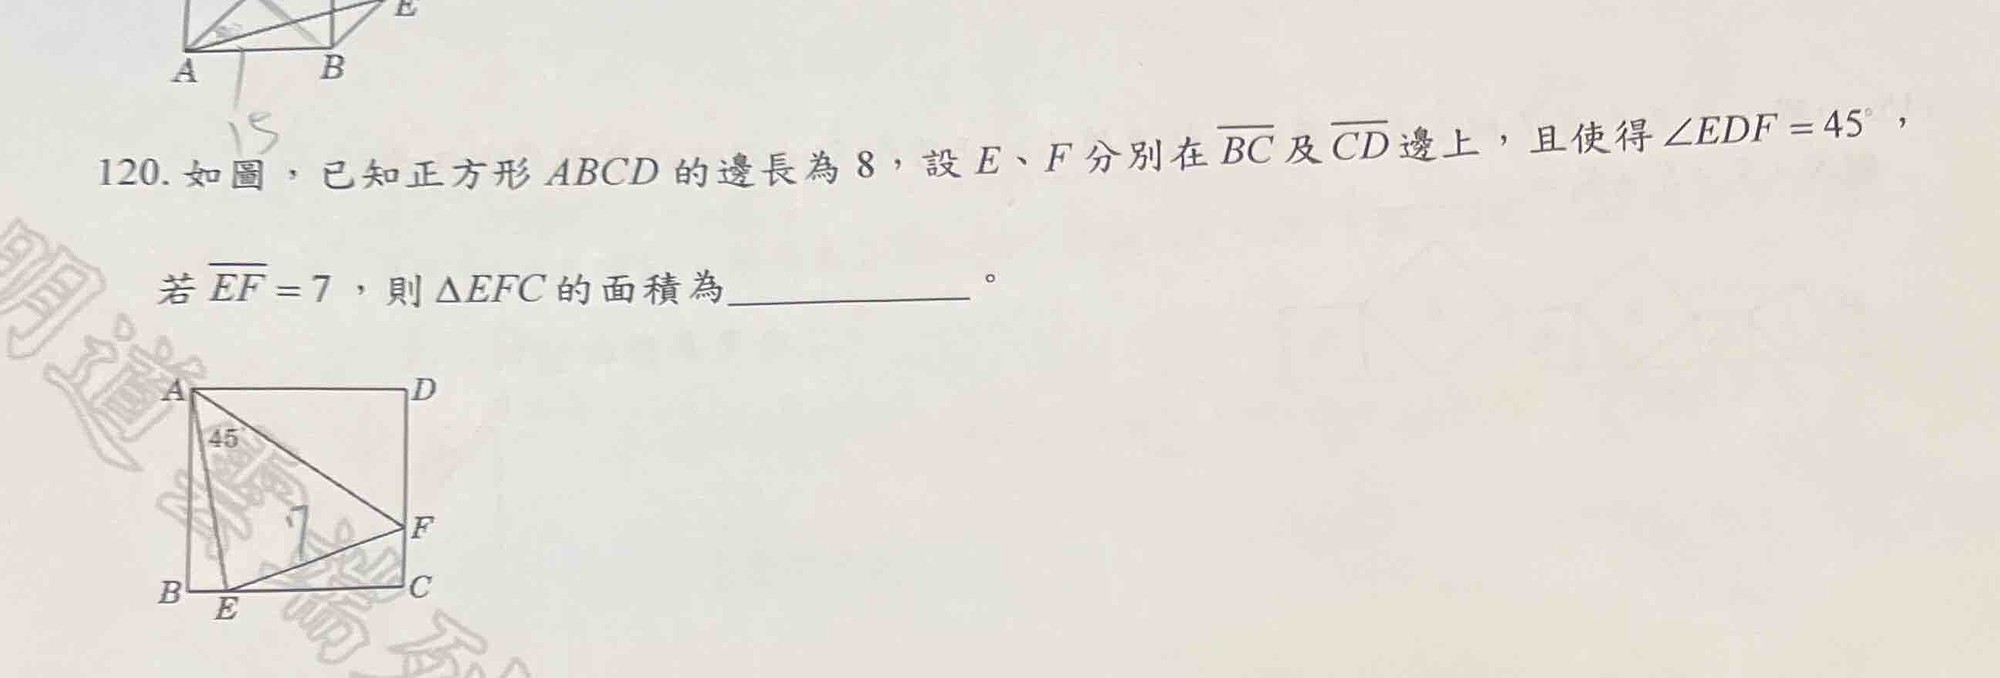 E
A B
15
120. 如圖，已知正方形 ABCD 的邊長為 8，設 E、F 分別在 BC 及 CD 邊上，且使得 ∠EDF = 45°，
若 EF = 7，則 ΔEFC 的面積為__________。
A D
45°
7
F
B E C
明道